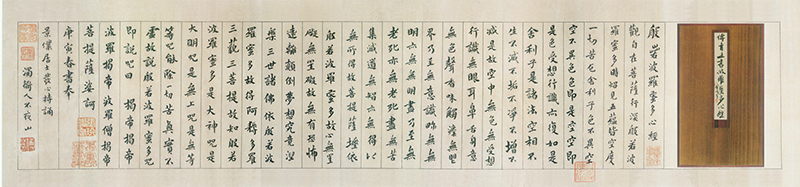 般若波羅蜜多心經
觀自在菩薩行深般若波
羅蜜多時照見五蘊皆空度
一切苦厄舍利子色不異空
空不異色色即是空空即
是色受想行識亦復如是
舍利子是諸法空相不
生不滅不垢不淨不增不
減是故空中無色無受想
行識無眼耳鼻舌身意
無色聲香味觸法無眼
界乃至無意識界無無
明亦無無明盡乃至無
老死亦無老死盡無苦
集滅道無智亦無得以
無所得故菩提薩埵依
般若波羅蜜多故心無罣
礙無罣礙故無有恐怖
遠離顛倒夢想究竟涅
槃三世諸佛依般若波
羅蜜多故得阿耨多羅
三藐三菩提故知般若
波羅蜜多是大神咒是
大明咒是無上咒是無等
等咒能除一切苦真實不
虛故說般若波羅蜜多咒
即說咒曰 揭帝揭帝
波羅揭帝 波羅僧揭帝
菩提薩婆訶
庚寅春書奉
居士發心持誦
山